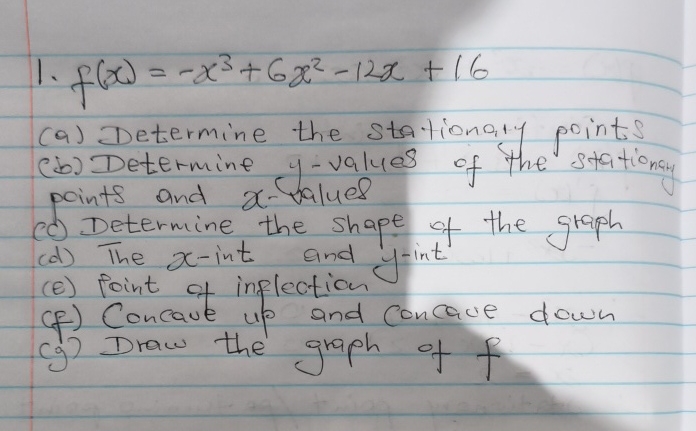 1. f(x) = -x³ + 6x² - 12x + 16
(a) Determine the stationary points
(b) Determine y-values of the stationary
points and x-values
(c) Determine the shape of the graph
(d) The x-int and y-int
(e) Point of inflection
(f) Concave up and concave down
(g) Draw the graph of f